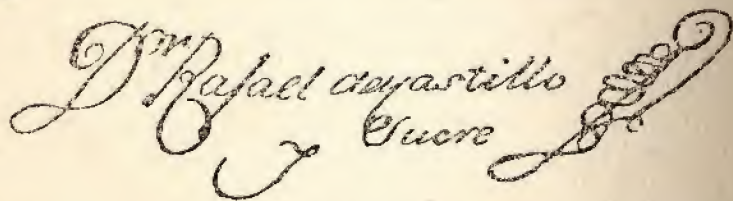 Dⁿ Rafael del Castillo
y Sucre